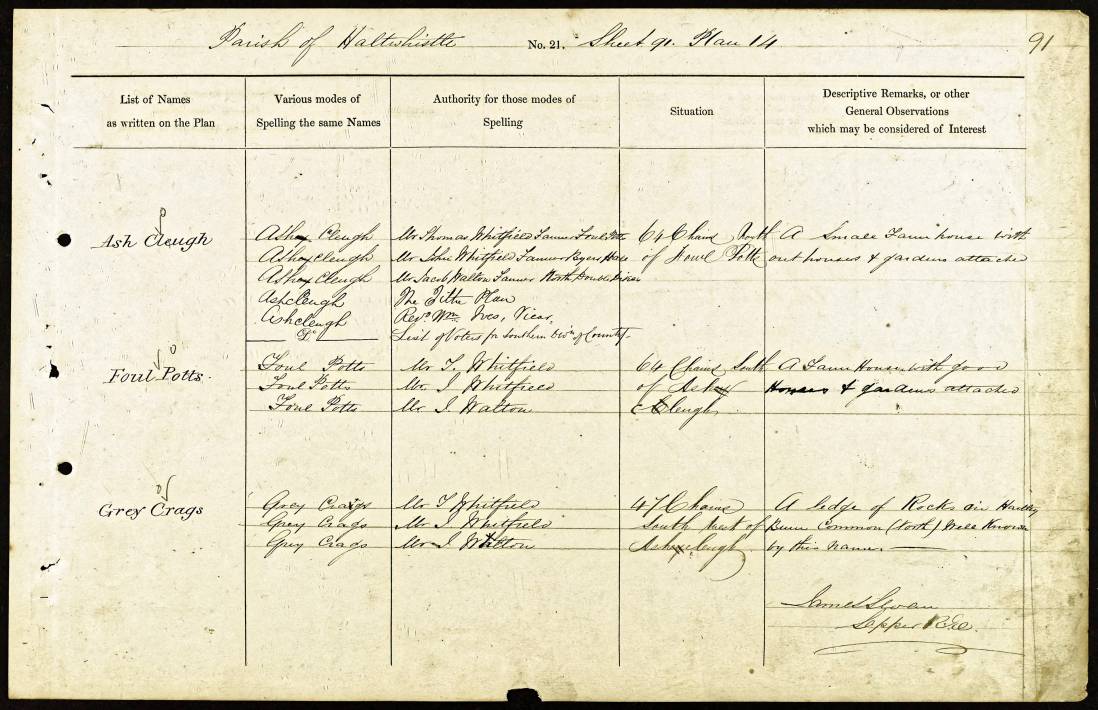 Parish of Haltwhistle No. 21. Sheet 91. Plan 14
91
List of Names
as written on the Plan
Various modes of
Spelling the same Names
Authority for those modes of
Spelling
Situation
Descriptive Remarks, or other
General Observations
which may be considered of Interest
Ash Cleugh
Ashey Cleugh
Ashey Cleugh
Ashey Cleugh
Ashcleugh
Ashcleugh
Do
Mr Thomas Whitfield Farmer Foul Potts
Mr John Whitfield Farmer Byers
Mr Jacob Walton Farmer North
The Tithe Plan
Revd Wm. Ives, Vicar
List of Voters for Southern Divn of County
64 Chains North
of Foul Potts
A Small Farm house with
out houses & gardens attached
Foul Potts
Foul Potts
Foul Potts
Foul Potts
Mr T. Whitfield
Mr J Whitfield
Mr J. Walton
64 Chains South
of Ash
Cleugh
A Farm House with good
Houses & gardens attached
Grey Crags
Grey Craigs
Grey Crags
Grey Crags
Mr T Whitfield
Mr J. Whitfield
Mr J Walton
47 Chains
South West of
Ash cleugh
A ledge of Rocks in
Common (North) Well Known
by this name
James Sloan
Sapper R.E.